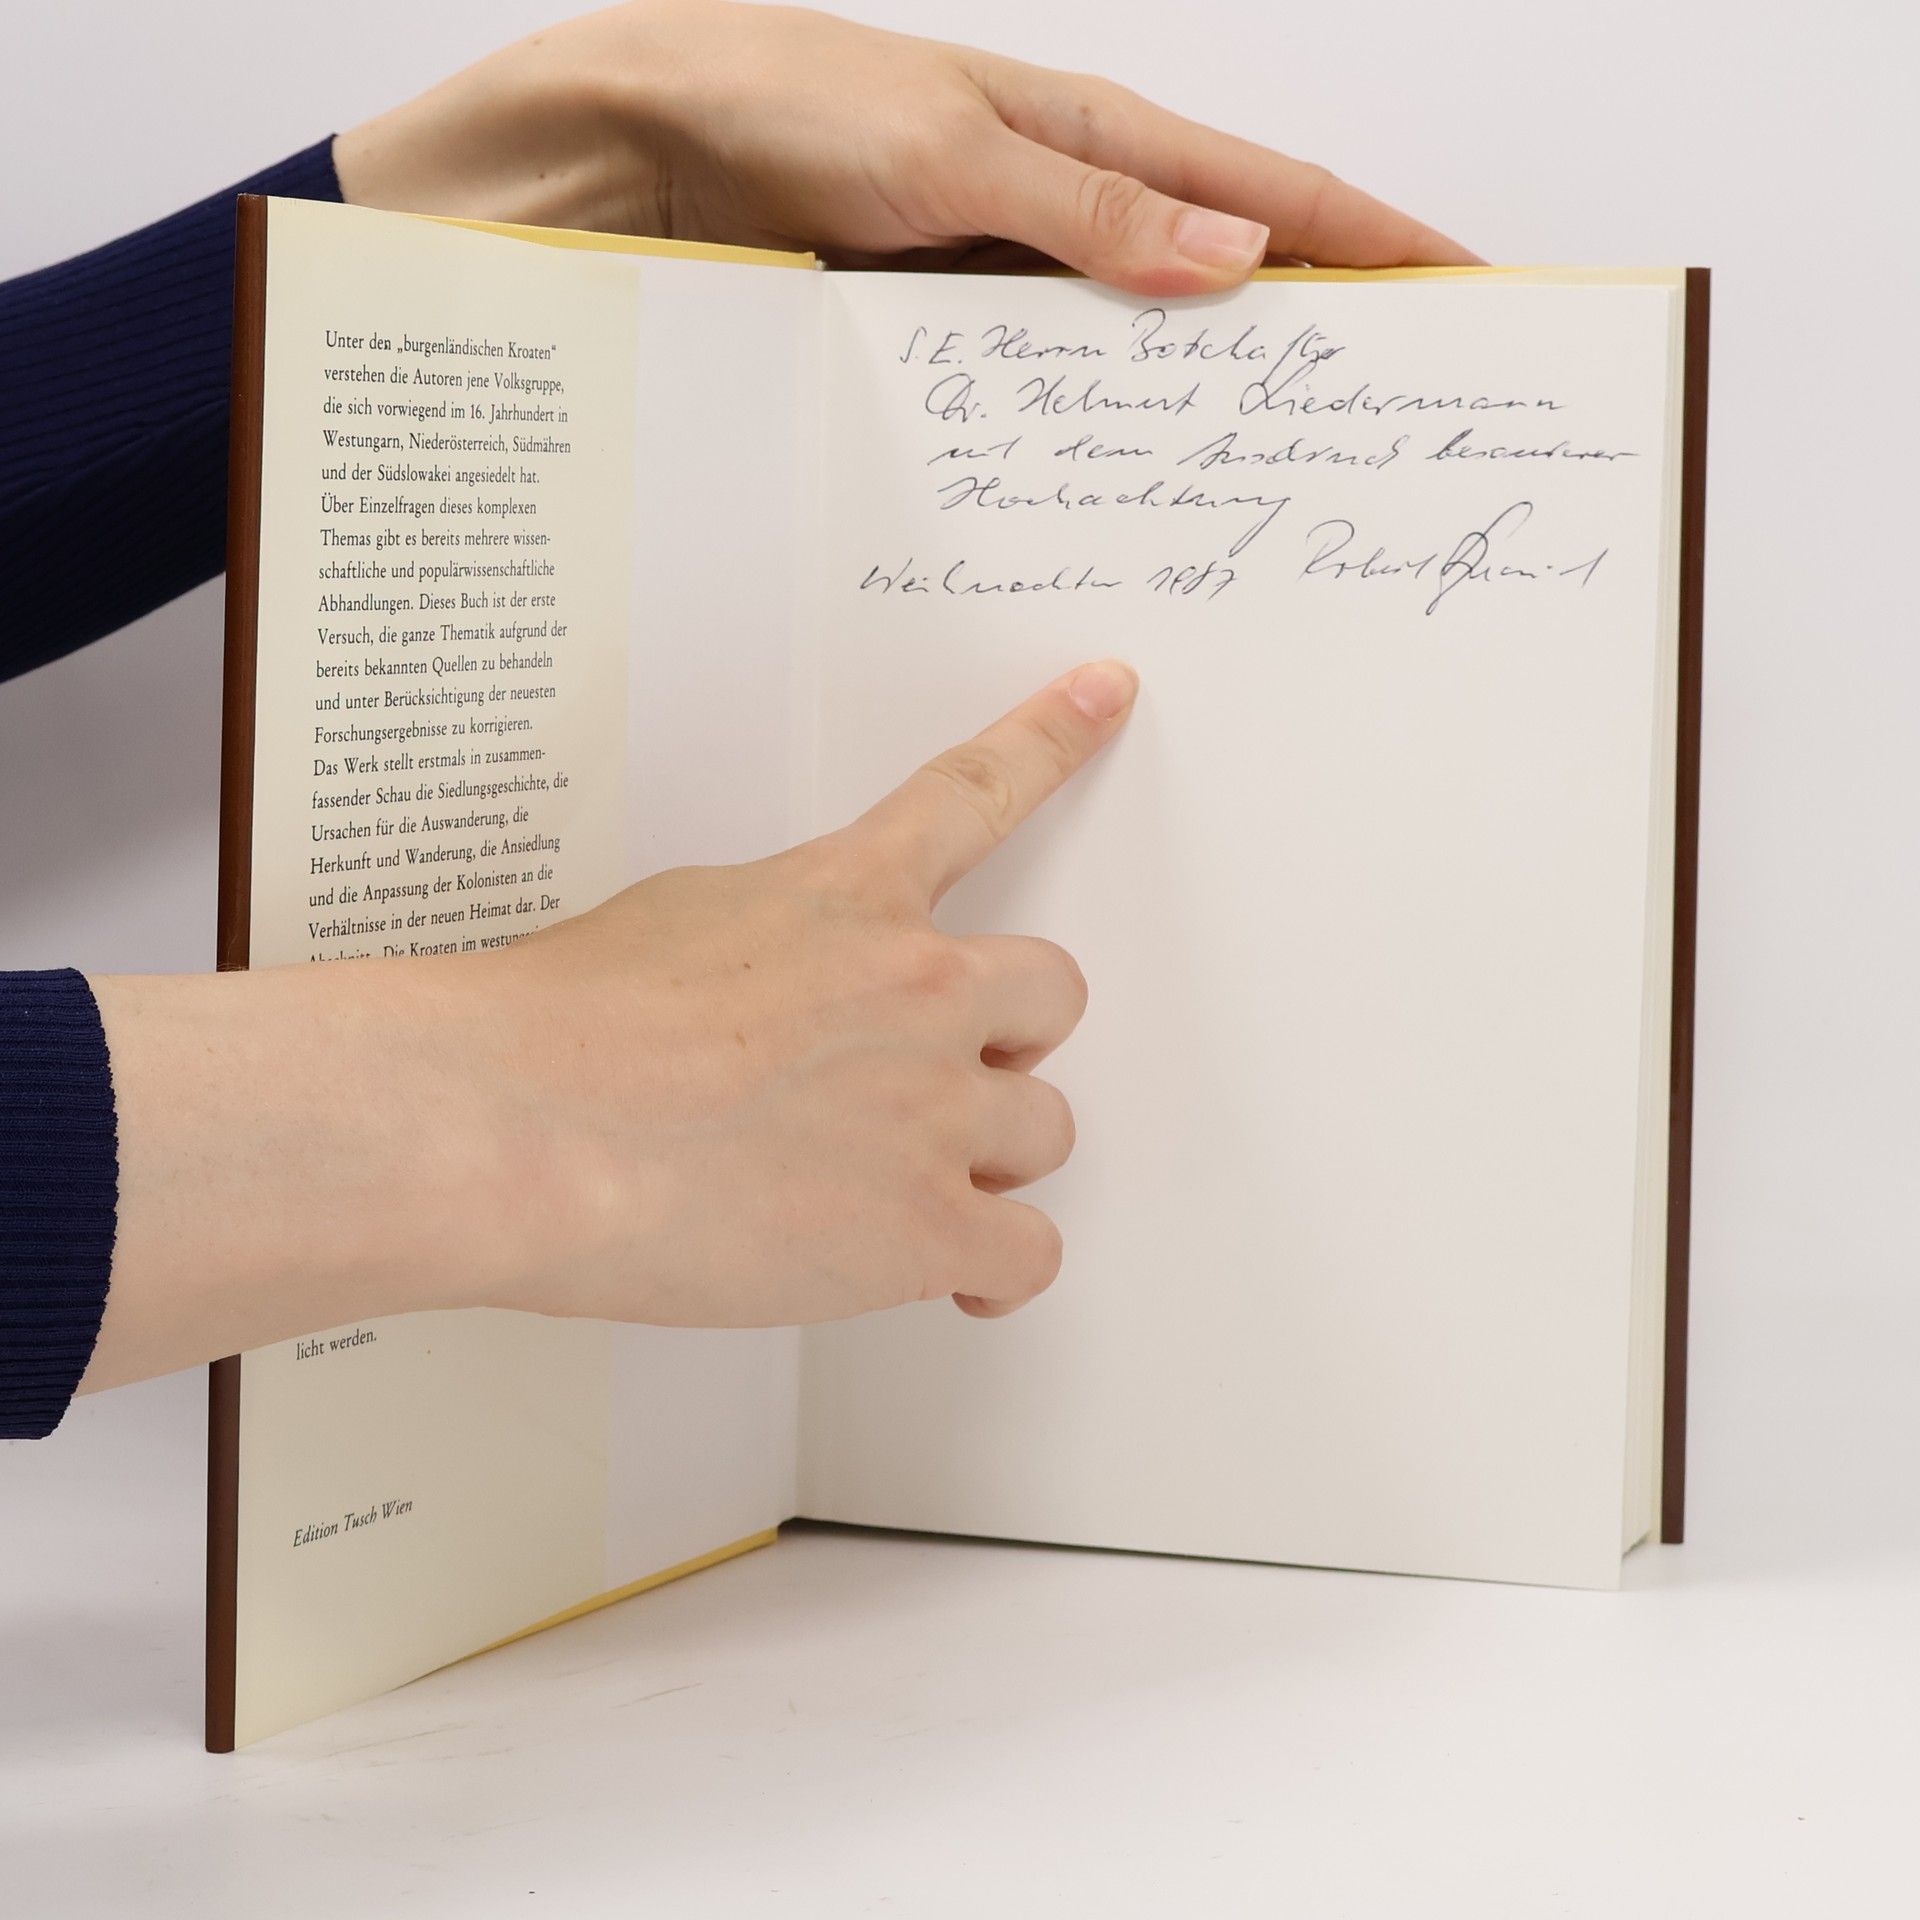 Unter den „burgenländischen Kroaten“
verstehen die Autoren jene Volksgruppe,
die sich vorwiegend im 16. Jahrhundert in
Westungarn, Niederösterreich, Südmähren
und der Südslowakei angesiedelt hat.
Über Einzelfragen dieses komplexen
Themas gibt es bereits mehrere wissen-
schaftliche und populärwissenschaftliche
Abhandlungen. Dieses Buch ist der erste
Versuch, die ganze Thematik aufgrund der
bereits bekannten Quellen zu behandeln
und unter Berücksichtigung der neuesten
Forschungsergebnisse zu korrigieren.
Das Werk stellt erstmals in zusammen-
fassender Schau die Siedlungsgeschichte, die
Ursachen für die Auswanderung, die
Herkunft und Wanderung, die Ansiedlung
und die Anpassung der Kolonisten an die
Verhältnisse in der neuen Heimat dar. Der
Die Kroaten im
licht werden.
Edition Tusch Wien
S. E. Herrn Botschafter
Dr. Helmut Liedermann
mit dem Ausdruck besonderer
Hochachtung
Weihnachten 1987 Robert